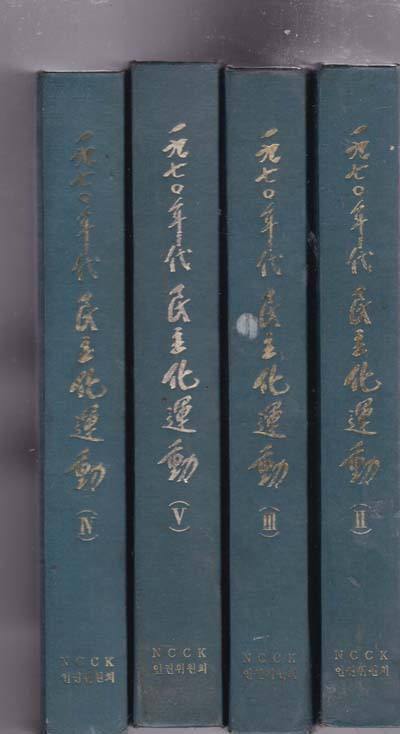 一九七〇年代 民主化運動
(Ⅳ)
NCCK
인권위원회
一九七〇年代 民主化運動
(Ⅴ)
NCCK
인권위원회
一九七〇年代 民主化運動
(Ⅲ)
NCCK
인권위원회
一九七〇年代 民主化運動
(Ⅱ)
NCCK
인권위원회